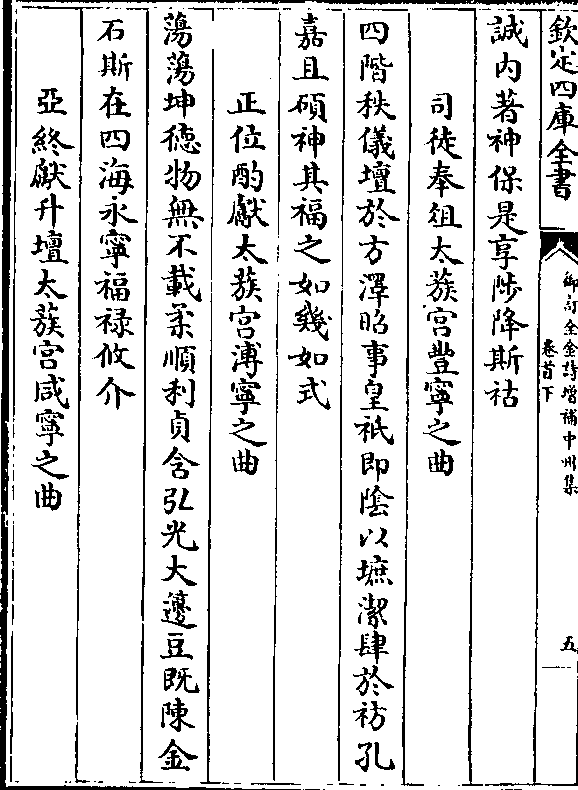 欽定四庫全書
御訂全金詩增補中州集
卷首下
五
誠内著神保是享陟降斯祜
司徒奉俎太蔟宫豐寧之曲
四階秩儀壇於方澤昭事皇祇即隂以墲潔肆於祊孔
嘉且碩神其福之如幾如式
正位酌獻太蔟宫溥寧之曲
蕩蕩坤徳物無不載柔順利貞含弘光大籩豆既陳金
石斯在四海永寧福禄攸介
亞終獻升壇太蔟宫咸寧之曲